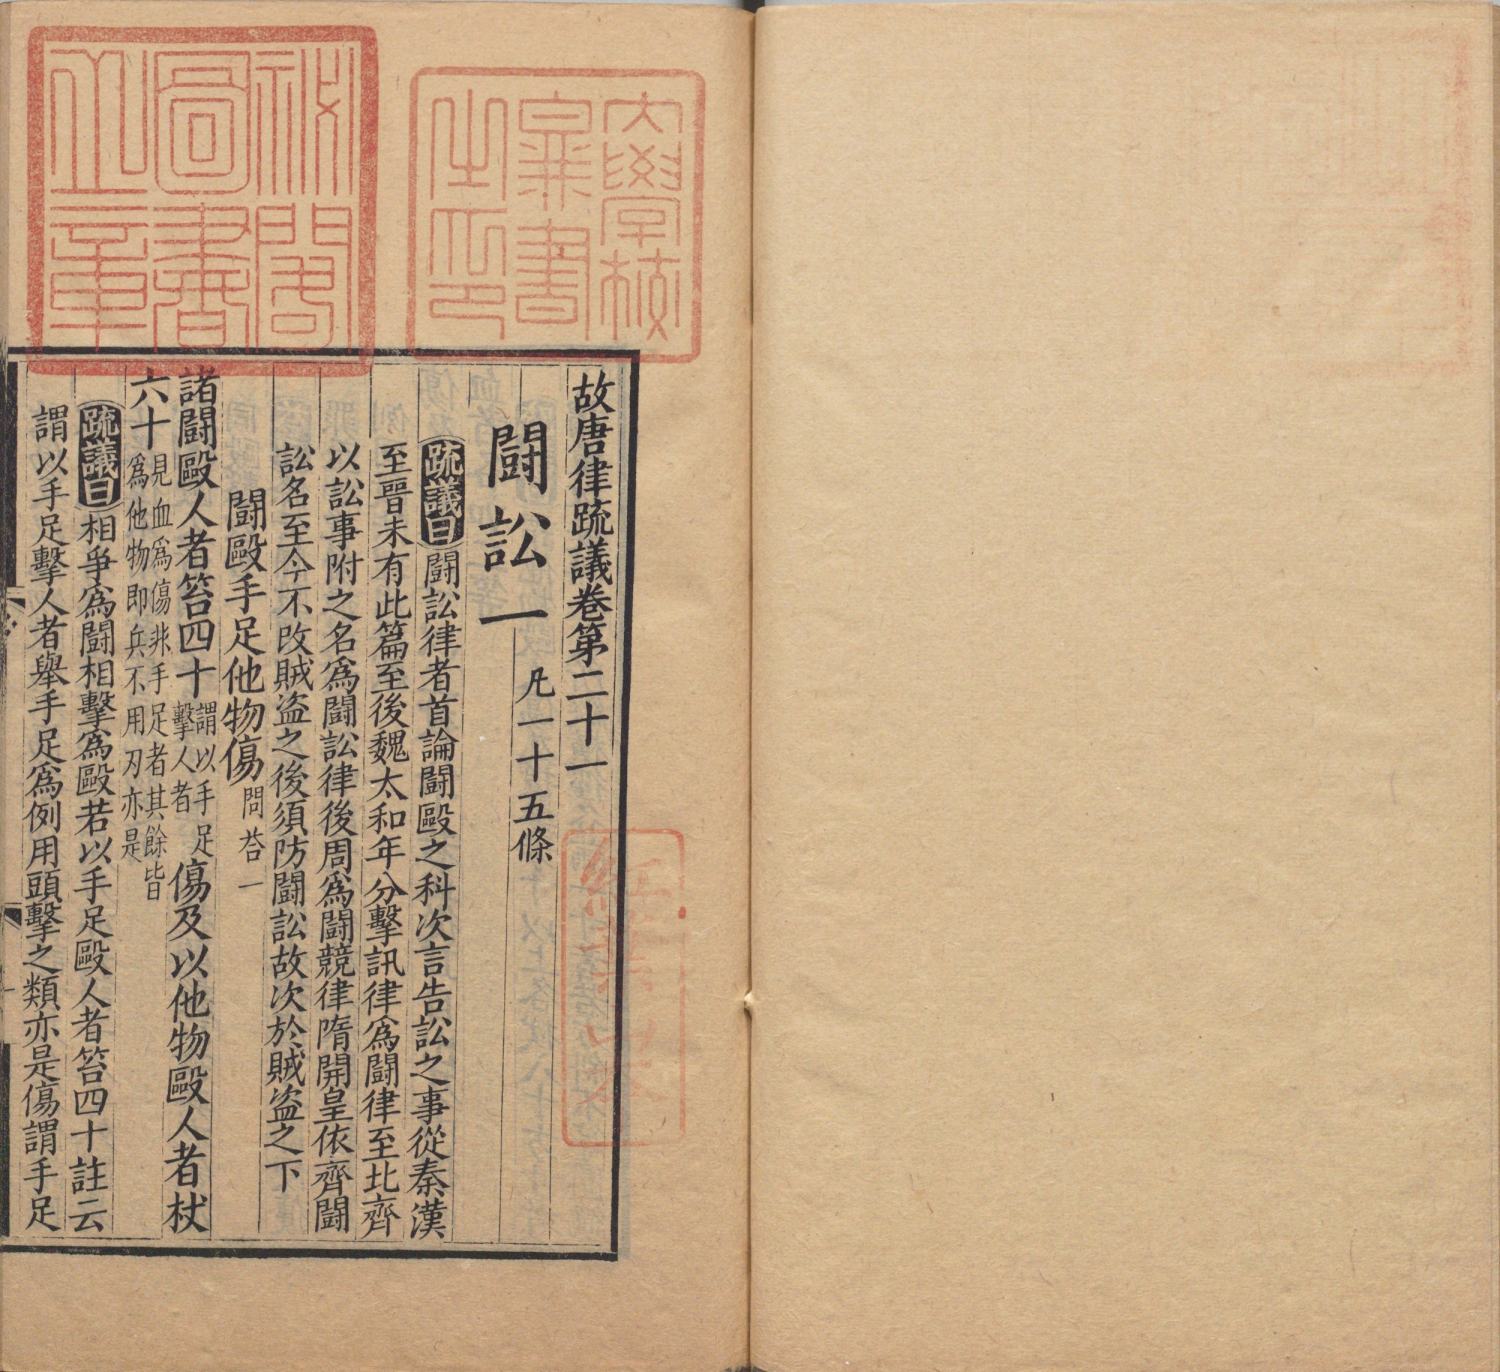 故唐律疏議卷第二十一
鬭訟一 凡一十五條
疏議曰鬭訟律者首論鬭毆之科次言告訟之事從秦漢
至晉未有此篇至後魏太和年分擊訊律爲鬭律至北齊
以訟事附之名爲鬭訟律後周爲鬭競律隋開皇依齊鬭
訟名至今不改賊盜之後須防鬭訟故次於賊盜之下
鬭毆手足他物傷 問荅一
諸鬭毆人者笞四十 謂以手足擊人者 傷及以他物毆人者杖
六十 見血爲傷非手足者其餘皆爲他物即兵不用刃亦是
疏議曰相爭爲鬭相擊爲毆若以手足毆人者笞四十註云
謂以手足擊人者舉手足爲例用頭擊之類亦是傷謂手足
大學校
彛書
之印
祕閣
圖書
之章